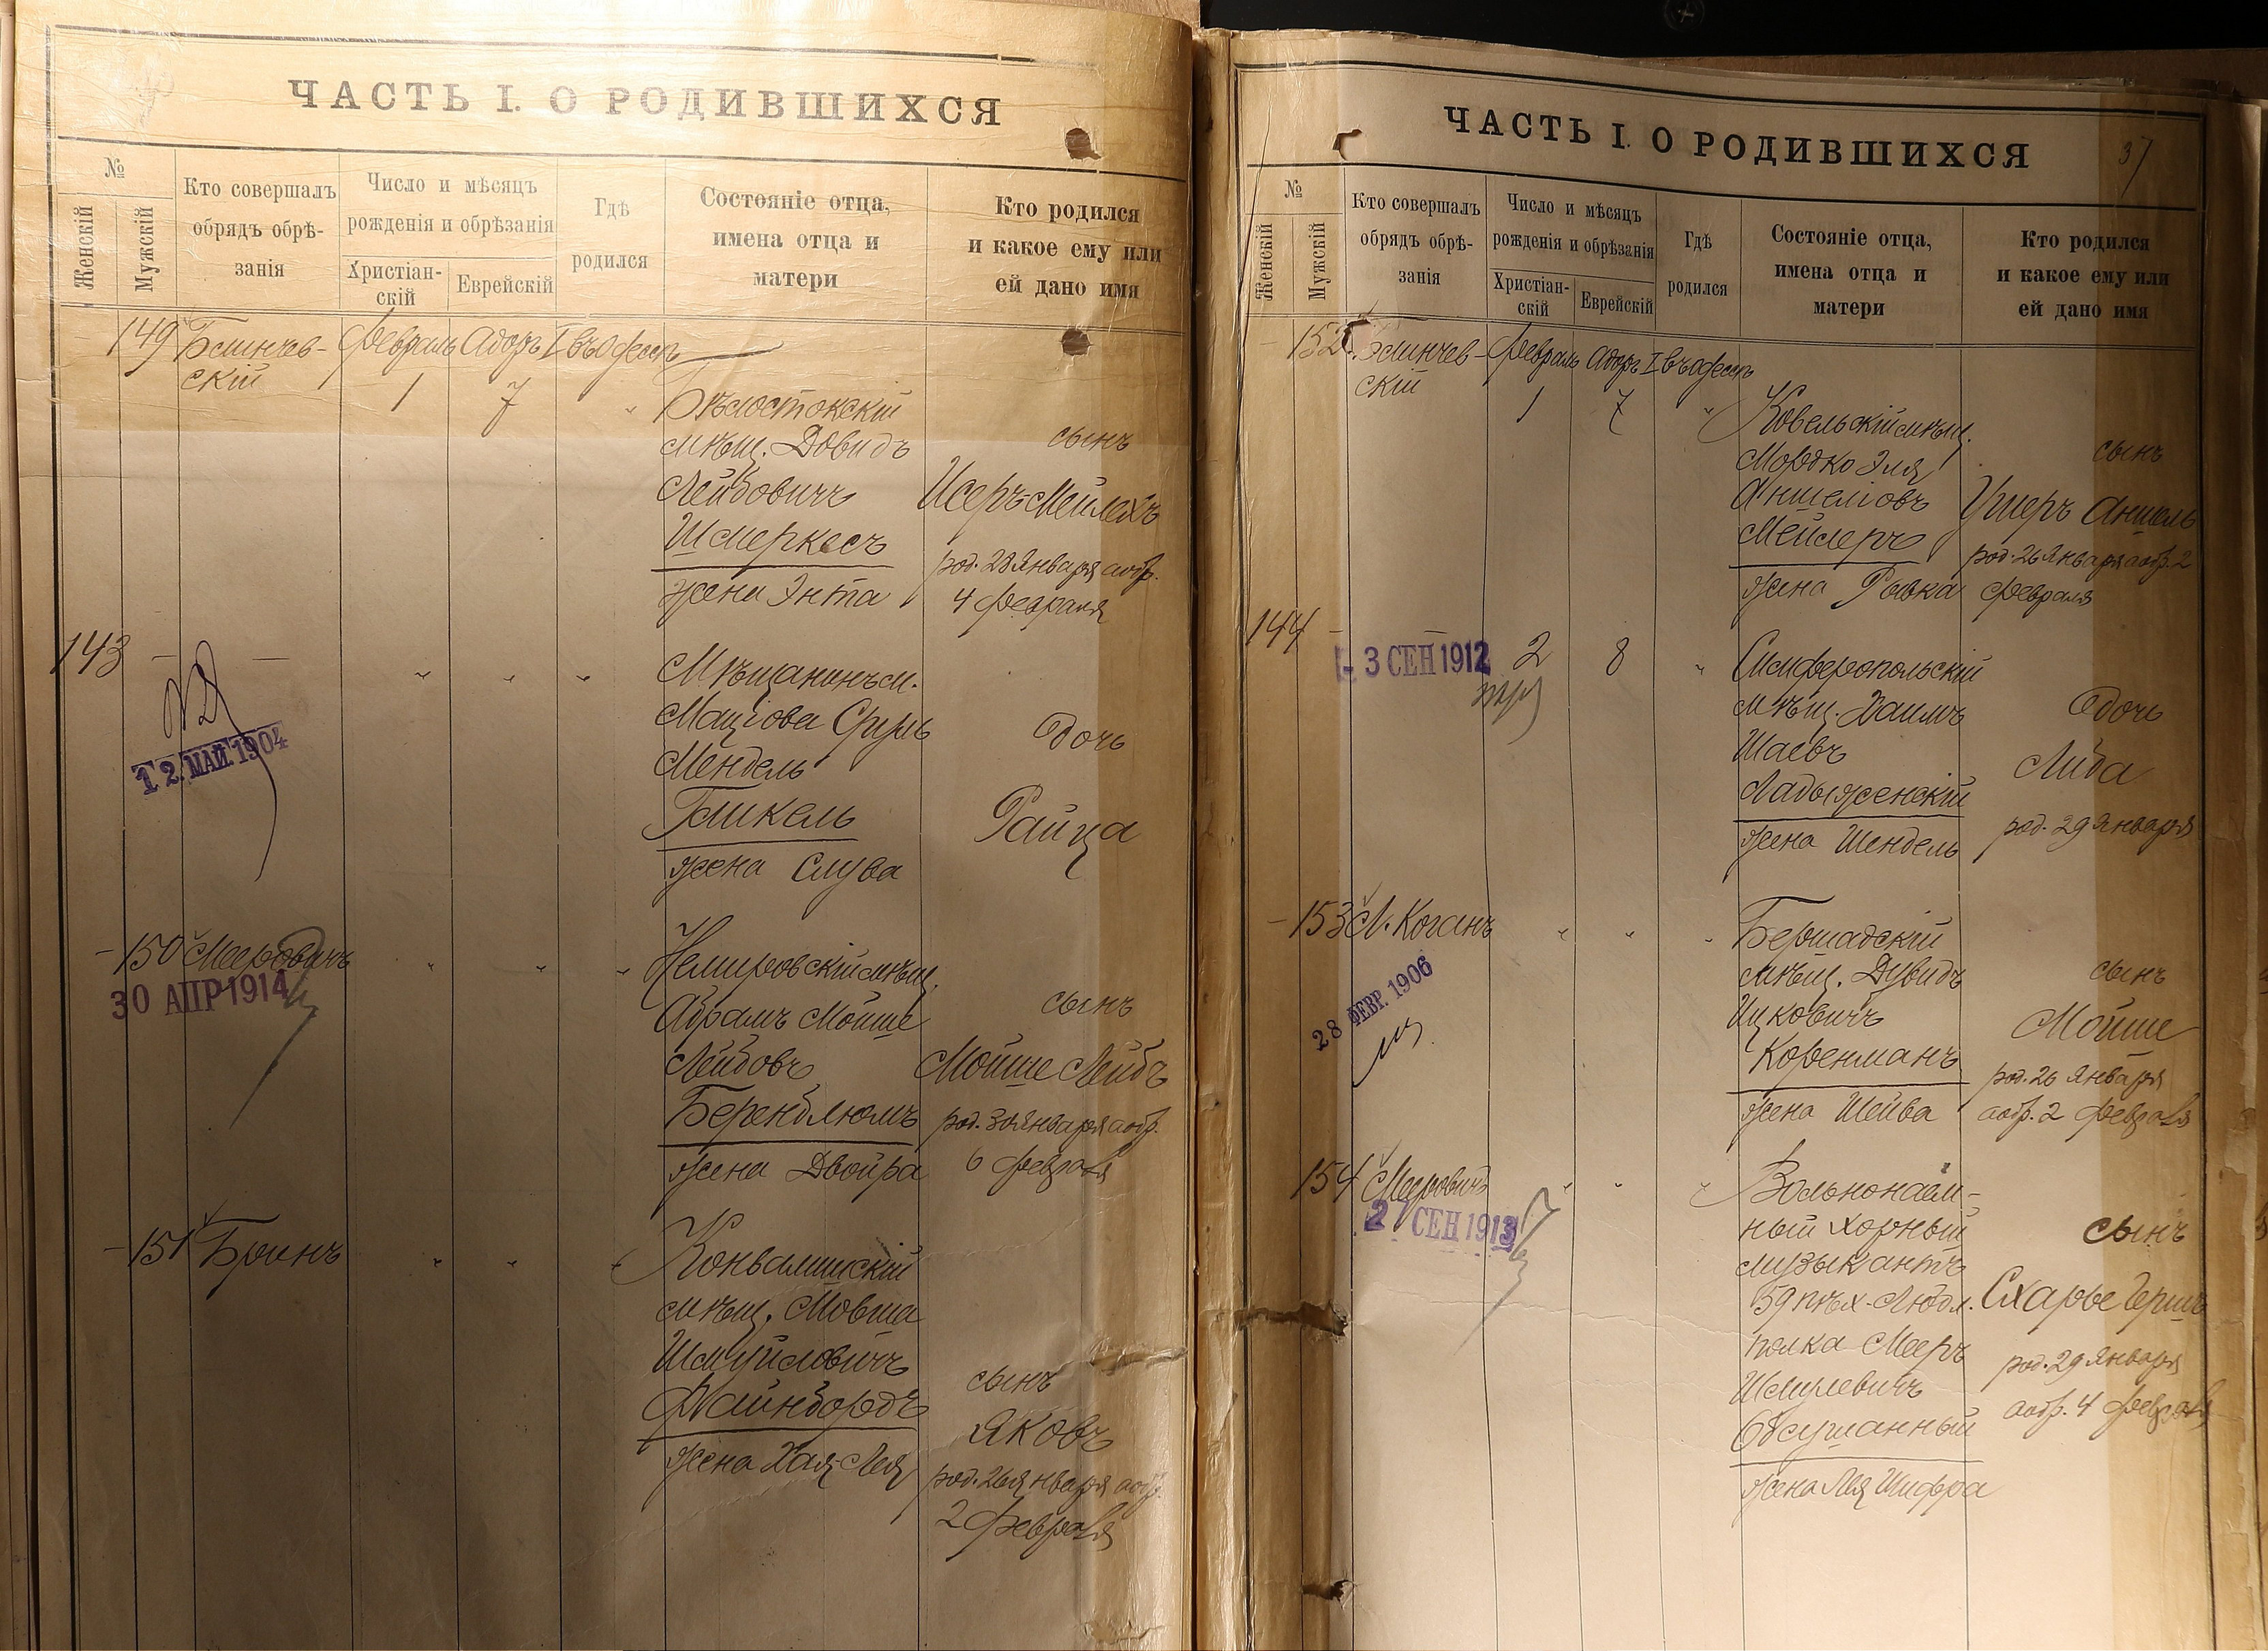 ЧАСТЬ I. О РОДИВШИХСЯ
№
Женскій
Мужскій
Кто совершалъ
обрядъ обрѣ-
занія
Число и мѣсяцъ
рожденія и обрѣзанія
Христіан-
скій
Еврейскій
Гдѣ
родился
Состояніе отца,
имена отца и
матери
Кто родился
и какое ему или
ей дано имя
149 Блинчев- Февраль Адаръ I въ Одессѣ
скій 1 7 "
Бѣлостокскій
мѣщ. Довидъ
Лейбовичъ
Шмеркесъ
жена Энта
сынъ
Исеръ-Мейлехъ
род. 28 Января а обр.
4 Февраля
143 — — " " "
12 МАЙ 1904
Мѣщанинъ м.
Маціова Сруль
Мендель
Гликель
жена Слува
дочь
Райца
- 150 Мееровичъ " " "
30 АПР 1914
Немировскій мѣщ.
Абрамъ Мойше
Лейбовъ
Беренблюмъ
жена Двойра
сынъ
Мойше Лейбъ
род. 30 Января а обр.
6 Февраля
- 151 Бринъ " " "
мѣщ. Мовша
Шмуйловичъ
Файнбордъ
жена Хая-Лея
сынъ
Яковъ
род. 26 Января а обр.
2 Февраля
ЧАСТЬ I. О РОДИВШИХСЯ
37
№
Женскій
Мужскій
Кто совершалъ
обрядъ обрѣ-
занія
Число и мѣсяцъ
рожденія и обрѣзанія
Христіан-
скій
Еврейскій
Гдѣ
родился
Состояніе отца,
имена отца и
матери
Кто родился
и какое ему или
ей дано имя
- 152 Блинчев- Февраль Адаръ I въ Одессѣ
скій 1 7 "
Ковельскій мѣщ.
Мордко Эля
Аншеліовъ
Мейлеръ
жена Ривка
сынъ
Ушеръ Аншель
род. 26 Января а обр. 2
Февраля
144 - — 2 8 "
3 СЕН 1912
Симферопольскій
мѣщ. Хаимъ
Шаевъ
Ладыженскій
жена Шендель
дочь
Люба
род. 29 Января
- 153 М. Коганъ " " "
28 ФЕВР. 1906
Бершадскій
мѣщ. Дувидъ
Ицковичъ
Коренманъ
жена Шейва
сынъ
Мойше
род. 26 Января
а обр. 2 Февраля
154 Мееровичъ " " "
27 СЕН 1913
Вольнонаем-
ный хорный
музыкантъ
59 пѣх. Любл.
полка Мееръ
Шмулевичъ
жена Лея Шифра
сынъ
Схарье Гершъ
род. 29 Января
а обр. 4 Февраля